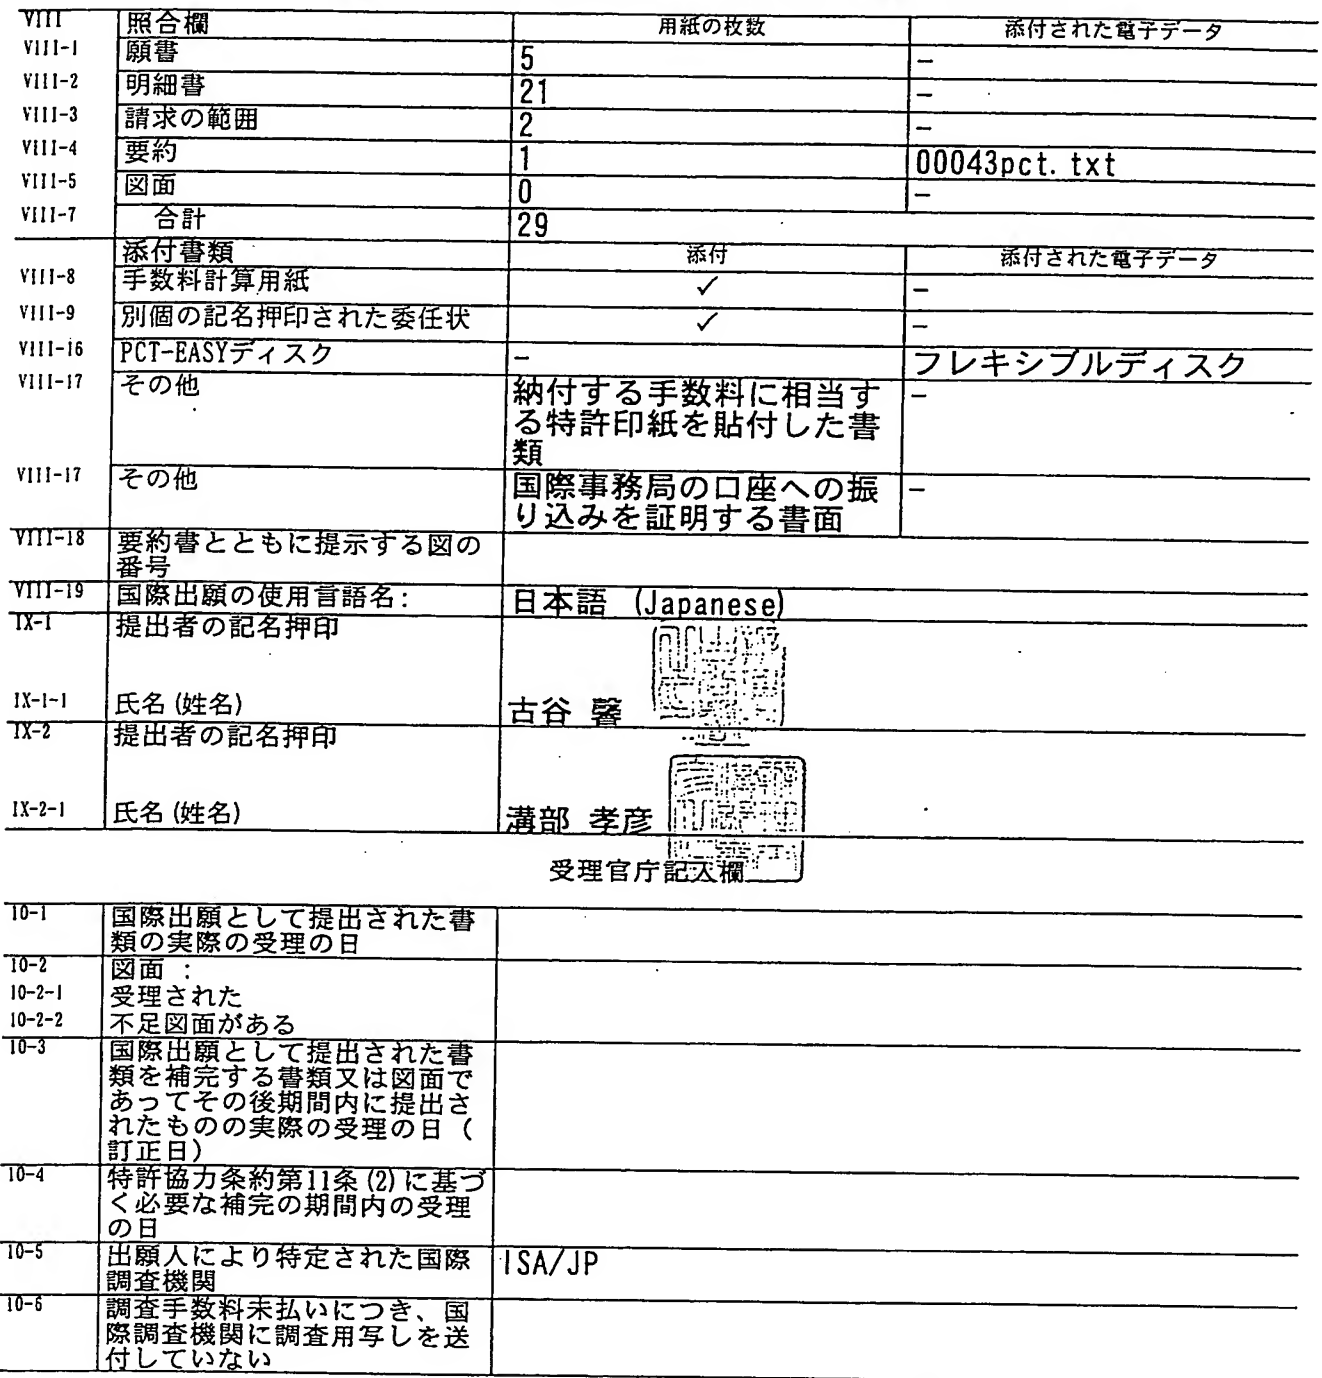 VIII 照合欄 用紙の枚数 添付された電子データ
VIII-1 願書 5 -
VIII-2 明細書 21 -
VIII-3 請求の範囲 2 -
VIII-4 要約 1 00043pct.txt
VIII-5 図面 0 -
VIII-7 合計 29
添付書類 添付 添付された電子データ
VIII-8 手数料計算用紙 ✓ -
VIII-9 別個の記名押印された委任状 ✓ -
VIII-16 PCT-EASYディスク - フレキシブルディスク
VIII-17 その他 納付する手数料に相当す -
る特許印紙を貼付した書
類
VIII-17 その他 国際事務局の口座への振 -
り込みを証明する書面
VIII-18 要約書とともに提示する図の
番号
VIII-19 国際出願の使用言語名: 日本語 (Japanese)
IX-1 提出者の記名押印
IX-1-1 氏名(姓名) 古谷 馨
IX-2 提出者の記名押印
IX-2-1 氏名(姓名) 溝部 孝彦
受理官庁記入欄
10-1 国際出願として提出された書
類の実際の受理の日
10-2 図面 :
10-2-1 受理された
10-2-2 不足図面がある
10-3 国際出願として提出された書
類を補完する書類又は図面で
あってその後期間内に提出さ
れたものの実際の受理の日(
訂正日)
10-4 特許協力条約第11条(2)に基づ
く必要な補完の期間内の受理
の日
10-5 出願人により特定された国際 ISA/JP
調査機関
10-6 調査手数料未払いにつき、国
際調査機関に調査用写しを送
付していない